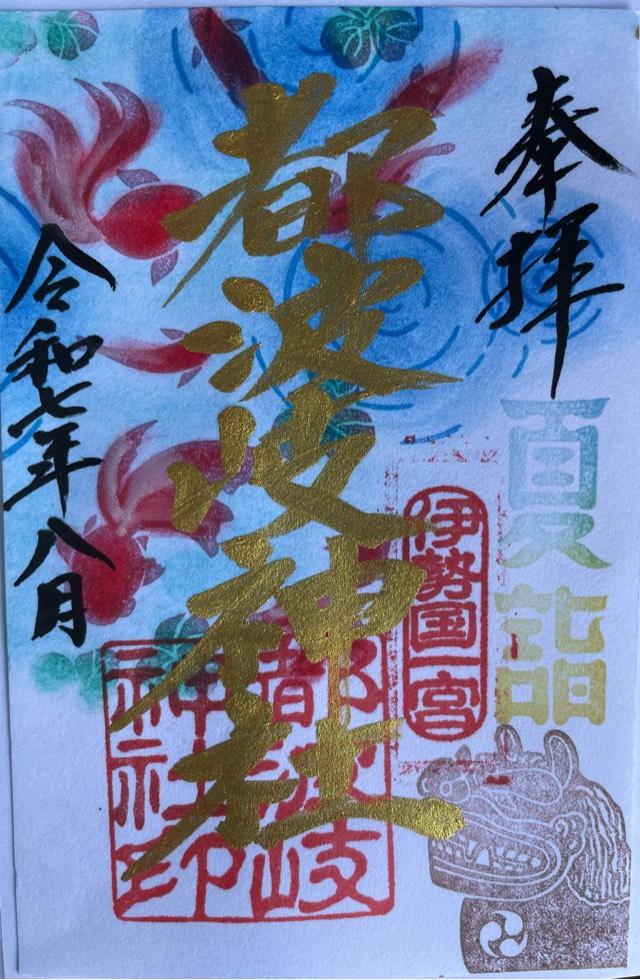 奉拝
夏詣
伊勢国一宮
都波岐神社
都波岐
神社印
令和七年八月